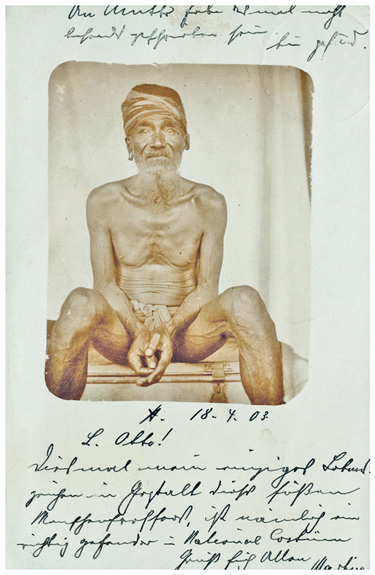 An Mutter habe diesmal nicht
besonders geschrieben
bin gesund.
A. 18.4.03.
L. Otto!
Diesmal mein einziges Lebens-
zeichen in Gestalt dieses süßen
Menschenfressers, ist nämlich ein
richtig gehender in National Costüm
Gruß Euch Allen